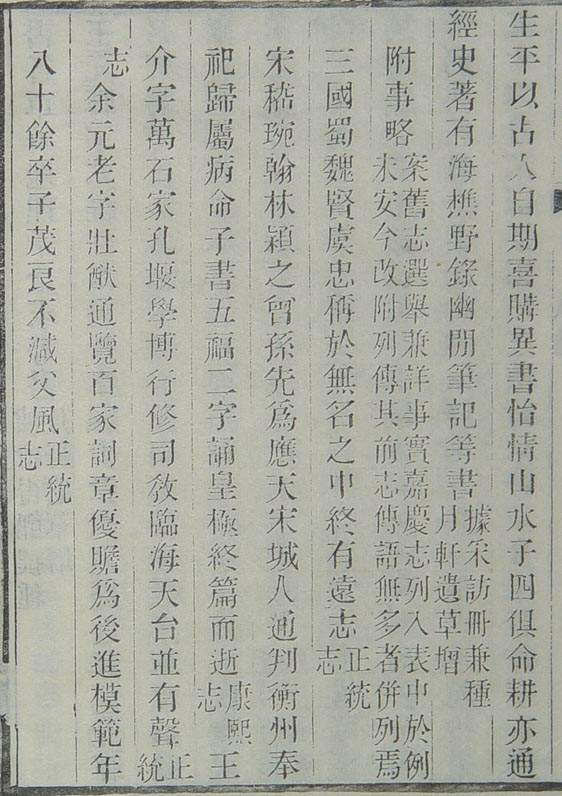 生平以古人自期喜購異書怡情山水子四俱命耕亦通
經史著有海樵野錄幽閒筆記等書據采訪冊兼種月軒遺草增
附事略案舊志選舉兼詳事實嘉慶志列入表中於例未安今改附列傳其前志傳語無多者併列焉
三國蜀魏賢虞忠稱於無名之中終有遠志正統志
宋嵇琬翰林穎之曾孫先爲應天宋城人通判衡州奉
祀歸屬病命子書五福二字誦皇極終篇而逝康熙志王
介字萬石家孔堰學博行修司敎臨海天台並有聲正統
志余元老字壯猷通覽百家詞章優贍爲後進模範年
八十餘卒子茂良不減父風正統志